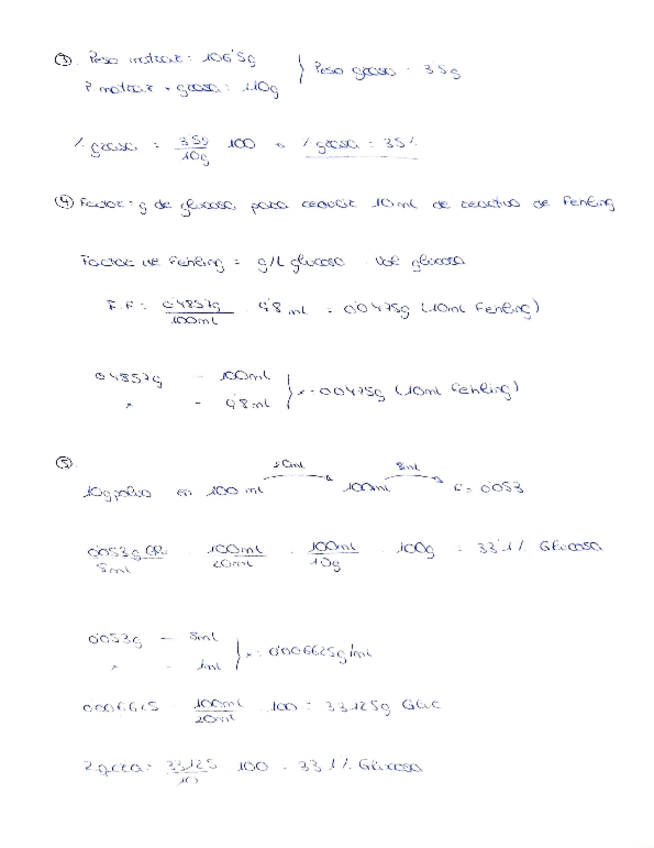 ③. Peso matraz: 106'5g } Peso grasa: 3'5g
P. matraz + grasa: 110g
% grasa = 3'5g / 10g · 100 = % grasa = 35%
④ Factor: g de glucosa para reducir 10ml de reactivo de Fehling
Factor de Fehling = g/L glucosa · Vol glucosa
F.F = 0'4857g / 100ml · 9'8 ml = 0'0475g (10ml Fehling)
0'4857g — 100ml } x = 0'0475g (10ml Fehling)
x — 9'8ml
⑤.
10g polvo en 100 ml → 20ml → 100ml → 8ml → C = 0'053
0'053g Gl / 8ml · 100ml / 20ml · 100ml / 10g · 100g = 33'1% Glucosa
0'053g — 8ml } x = 0'006625g/ml
x — 1ml
0'006625 · 100ml / 20ml · 100 = 3'3125g Gluc
Riqueza = 3'3125 / 10 · 100 = 33'1% Glucosa